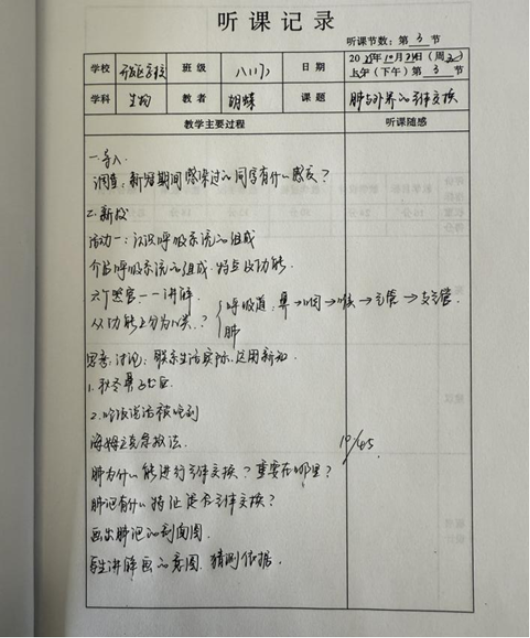 听课记录
听课节数：第 3 节
学校 开发区学校 班级 八(17) 日期 20 年10月 日（周三）
上午（下午）第 3 节
学科 生物 教者 胡蝶 课题 肺与外界的气体交换
教学主要过程 听课随感
一.导入.
调查：新冠期间感染过的同学有什么感受？
2.新授
活动一：认识呼吸系统的组成
介绍呼吸系统的组成.特点及功能.
六个器官一一讲解.
从功能上分为八类.？ 呼吸道：鼻→咽→喉→气管→支气管.
肺
思考,讨论：联系生活实际,运用新知.
1.秋冬鼻子出血.
2.吃饭说话被呛到
海姆立克急救法. 10/45
肺为什么能进行气体交换？重要在哪里？
肺泡有什么特征适合气体交换？
画出肺泡的剖面图.
学生讲解画的意图.猜测依据.